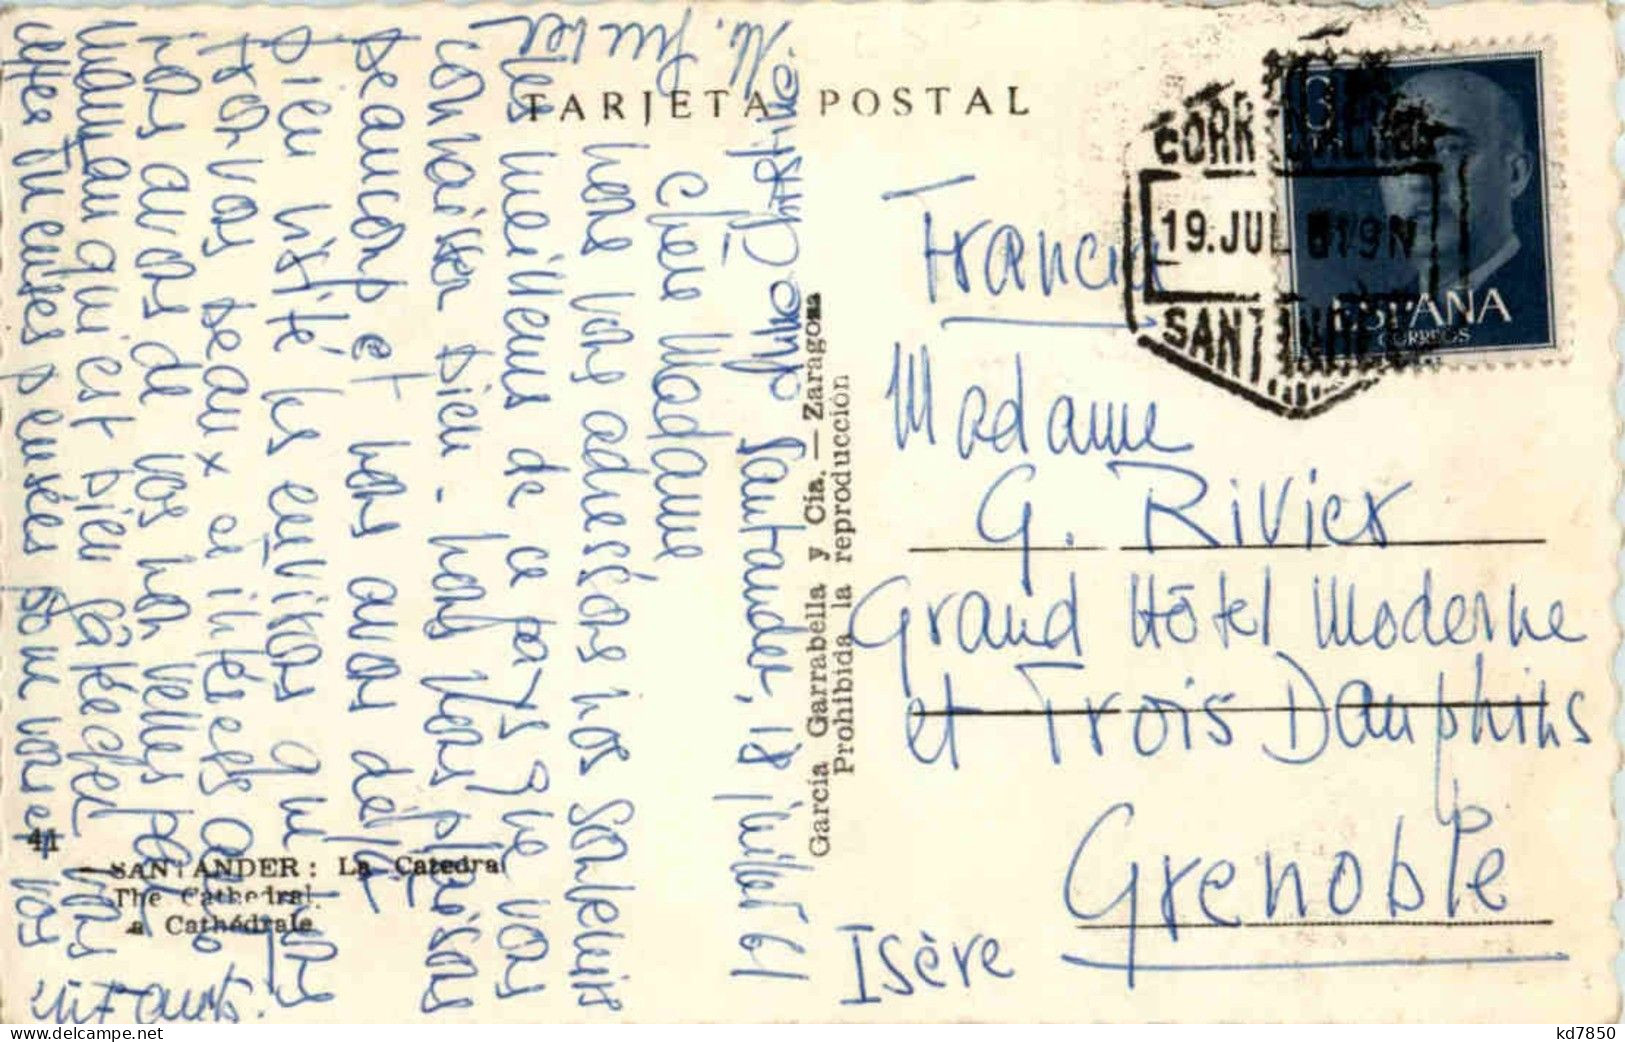 TARJETA POSTAL
19.JUL
SANTANDER
ESPAÑA
CORREOS
Francia
Madame
G. Rivier
Grand Hôtel Moderne
et Trois Dauphins
Grenoble
Isère
García Garrabella y Cía. — Zaragoza
Prohibida la reproducción
Santander, 18 juillet 61
Chère Madame
nous vous adressons nos souvenirs
les meilleurs de ce pays que vous
connaissez bien. nous nous plaisons
beaucoup et nous avons déjà
bien visité les environs que nous
trouvons beaux et intéressants.
nous avons de nos nouvelles par
maman qui est bien
pensées pour vous et vos
enfants.
41
SANTANDER: La Catedral
The Cathedral.
La Cathédrale
kd7850